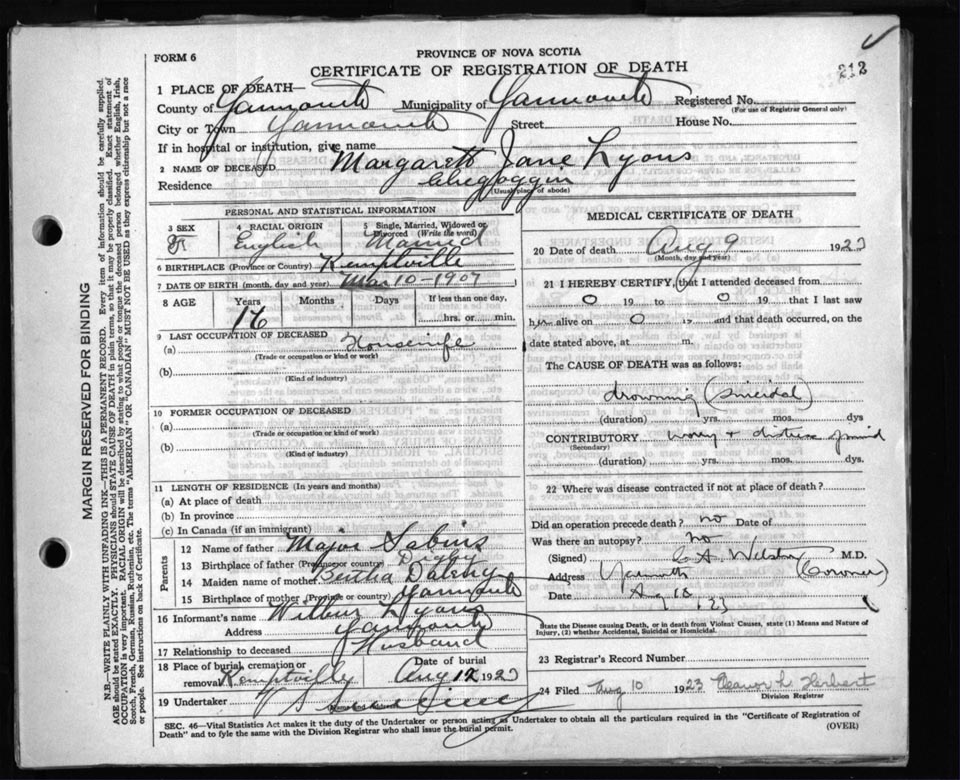 FORM 6
PROVINCE OF NOVA SCOTIA
CERTIFICATE OF REGISTRATION OF DEATH
212
1 PLACE OF DEATH—
County of Yarmouth Municipality of Yarmouth Registered No.
(For use of Registrar General only)
City or Town Yarmouth Street House No.
If in hospital or institution, give name
2 NAME OF DECEASED Margaret Jane Lyons
Residence Chegoggin
(Usual place of abode)
PERSONAL AND STATISTICAL INFORMATION
3 SEX F
4 RACIAL ORIGIN English
5 Single, Married, Widowed or Divorced (Write the word) Married
6 BIRTHPLACE (Province or Country) Kemptville
7 DATE OF BIRTH (month, day and year) Mar 10 - 1907
8 AGE Years Months Days If less than one day,
16 hrs. or min.
9 LAST OCCUPATION OF DECEASED
(a) Housewife
(Trade or occupation or kind or work)
(b)
(Kind of industry)
10 FORMER OCCUPATION OF DECEASED
(a)
(Trade or occupation or kind of work)
(b)
(Kind of industry)
11 LENGTH OF RESIDENCE (In years and months)
(a) At place of death
(b) In province
(c) In Canada (if an immigrant)
Parents
12 Name of father Major Sabins
13 Birthplace of father (Province or country) Digby
14 Maiden name of mother Bertha
15 Birthplace of mother (Province or country) Yarmouth
16 Informant's name Wilbur Lyons
Address Yarmouth
17 Relationship to deceased Husband
18 Place of burial, cremation or removal Kemptville
Date of burial Aug 12 1923
19 Undertaker
MEDICAL CERTIFICATE OF DEATH
20 Date of death Aug 9 1923
(Month, day and year)
21 I HEREBY CERTIFY, that I attended deceased from
0 19 to 0 19 that I last saw
h alive on 0 19 and that death occurred, on the
date stated above, at m.
The CAUSE OF DEATH was as follows:
drowning (suicidal)
(duration) yrs. mos. dys
CONTRIBUTORY worry + distress of mind
(Secondary)
(duration) yrs. mos. dys.
22 Where was disease contracted if not at place of death?
Did an operation precede death? no Date of
Was there an autopsy? no
(Signed) C A Webster M.D.
Address Yarmouth (Coroner)
Date Aug 10 1923
State the Disease causing Death, or in death from Violent Causes, state (1) Means and Nature of Injury, (2) whether Accidental, Suicidal or Homicidal.
23 Registrar's Record Number
24 Filed Aug 10 1923 Herbert
Division Registrar
SEC. 46—Vital Statistics Act makes it the duty of the Undertaker or person acting as Undertaker to obtain all the particulars required in the "Certificate of Registration of
Death" and to fyle the same with the Division Registrar who shall issue the burial permit. (OVER)
MARGIN RESERVED FOR BINDING
N.B.—WRITE PLAINLY WITH UNFADING INK—THIS IS A PERMANENT RECORD. Every item of information should be carefully supplied.
AGE should be stated EXACTLY. PHYSICIANS should STATE CAUSE OF DEATH in plain terms, so that it may be properly classified. Exact statement of
OCCUPATION is very important. RACIAL ORIGIN will be described by stating to what people or tongue the deceased person belonged whether English, Irish,
Scotch, French, German, Russian, Ruthenian, etc. The terms "AMERICAN" OR "CANADIAN" MUST NOT BE USED as they express citizenship but not a race
or people. See instructions on back of Certificate.